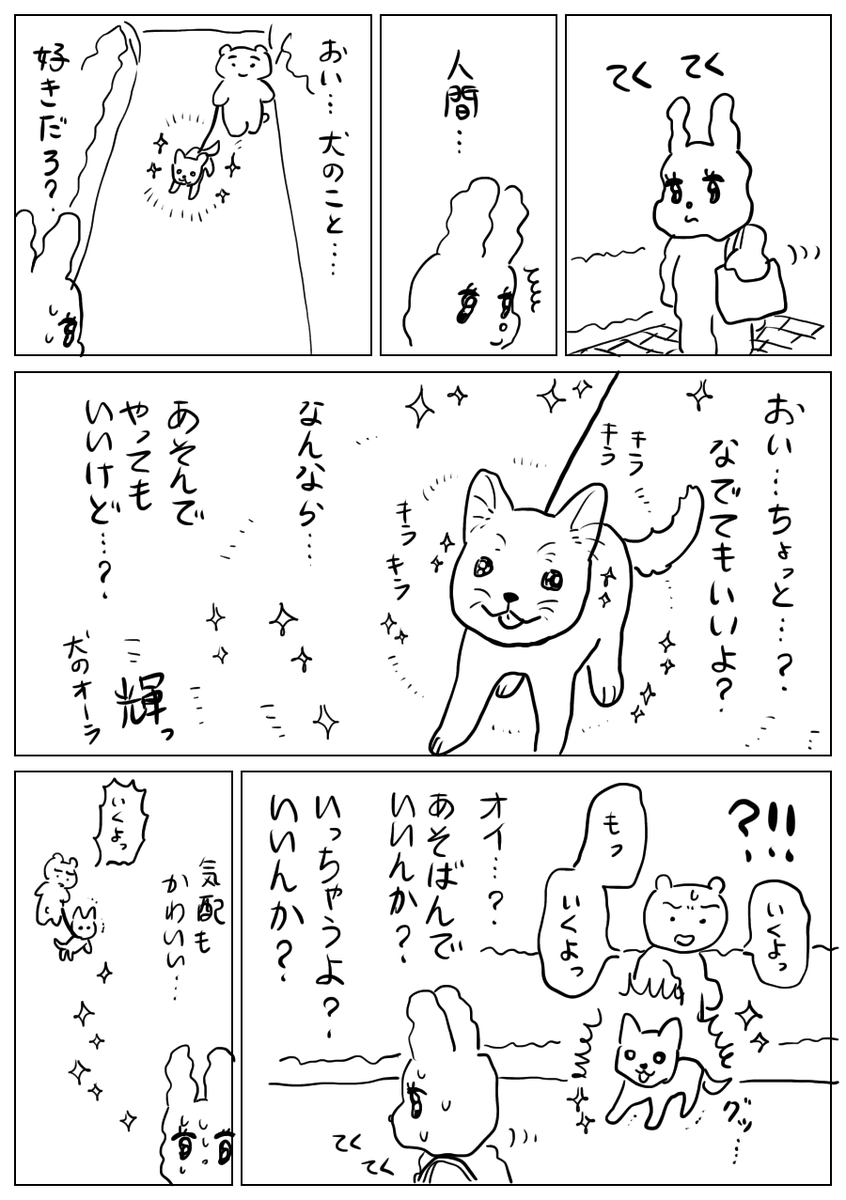 てく
てく
人間…
おい…犬のこと……
好きだろ?
おい…ちょっと…?
なでてもいいよ?
キラ
キラ
キラ
キラ
なんなら…
あそんで
やっても
いいけど…?
輝っ
犬のオーラ
?!!
いくよっ
もっ
いくよっ
グッ…
オイ…?
あそばんで
いいんか?
いっちゃうよ?
いいんか?
てく
てく
いくよっ
気配も
かわいい…